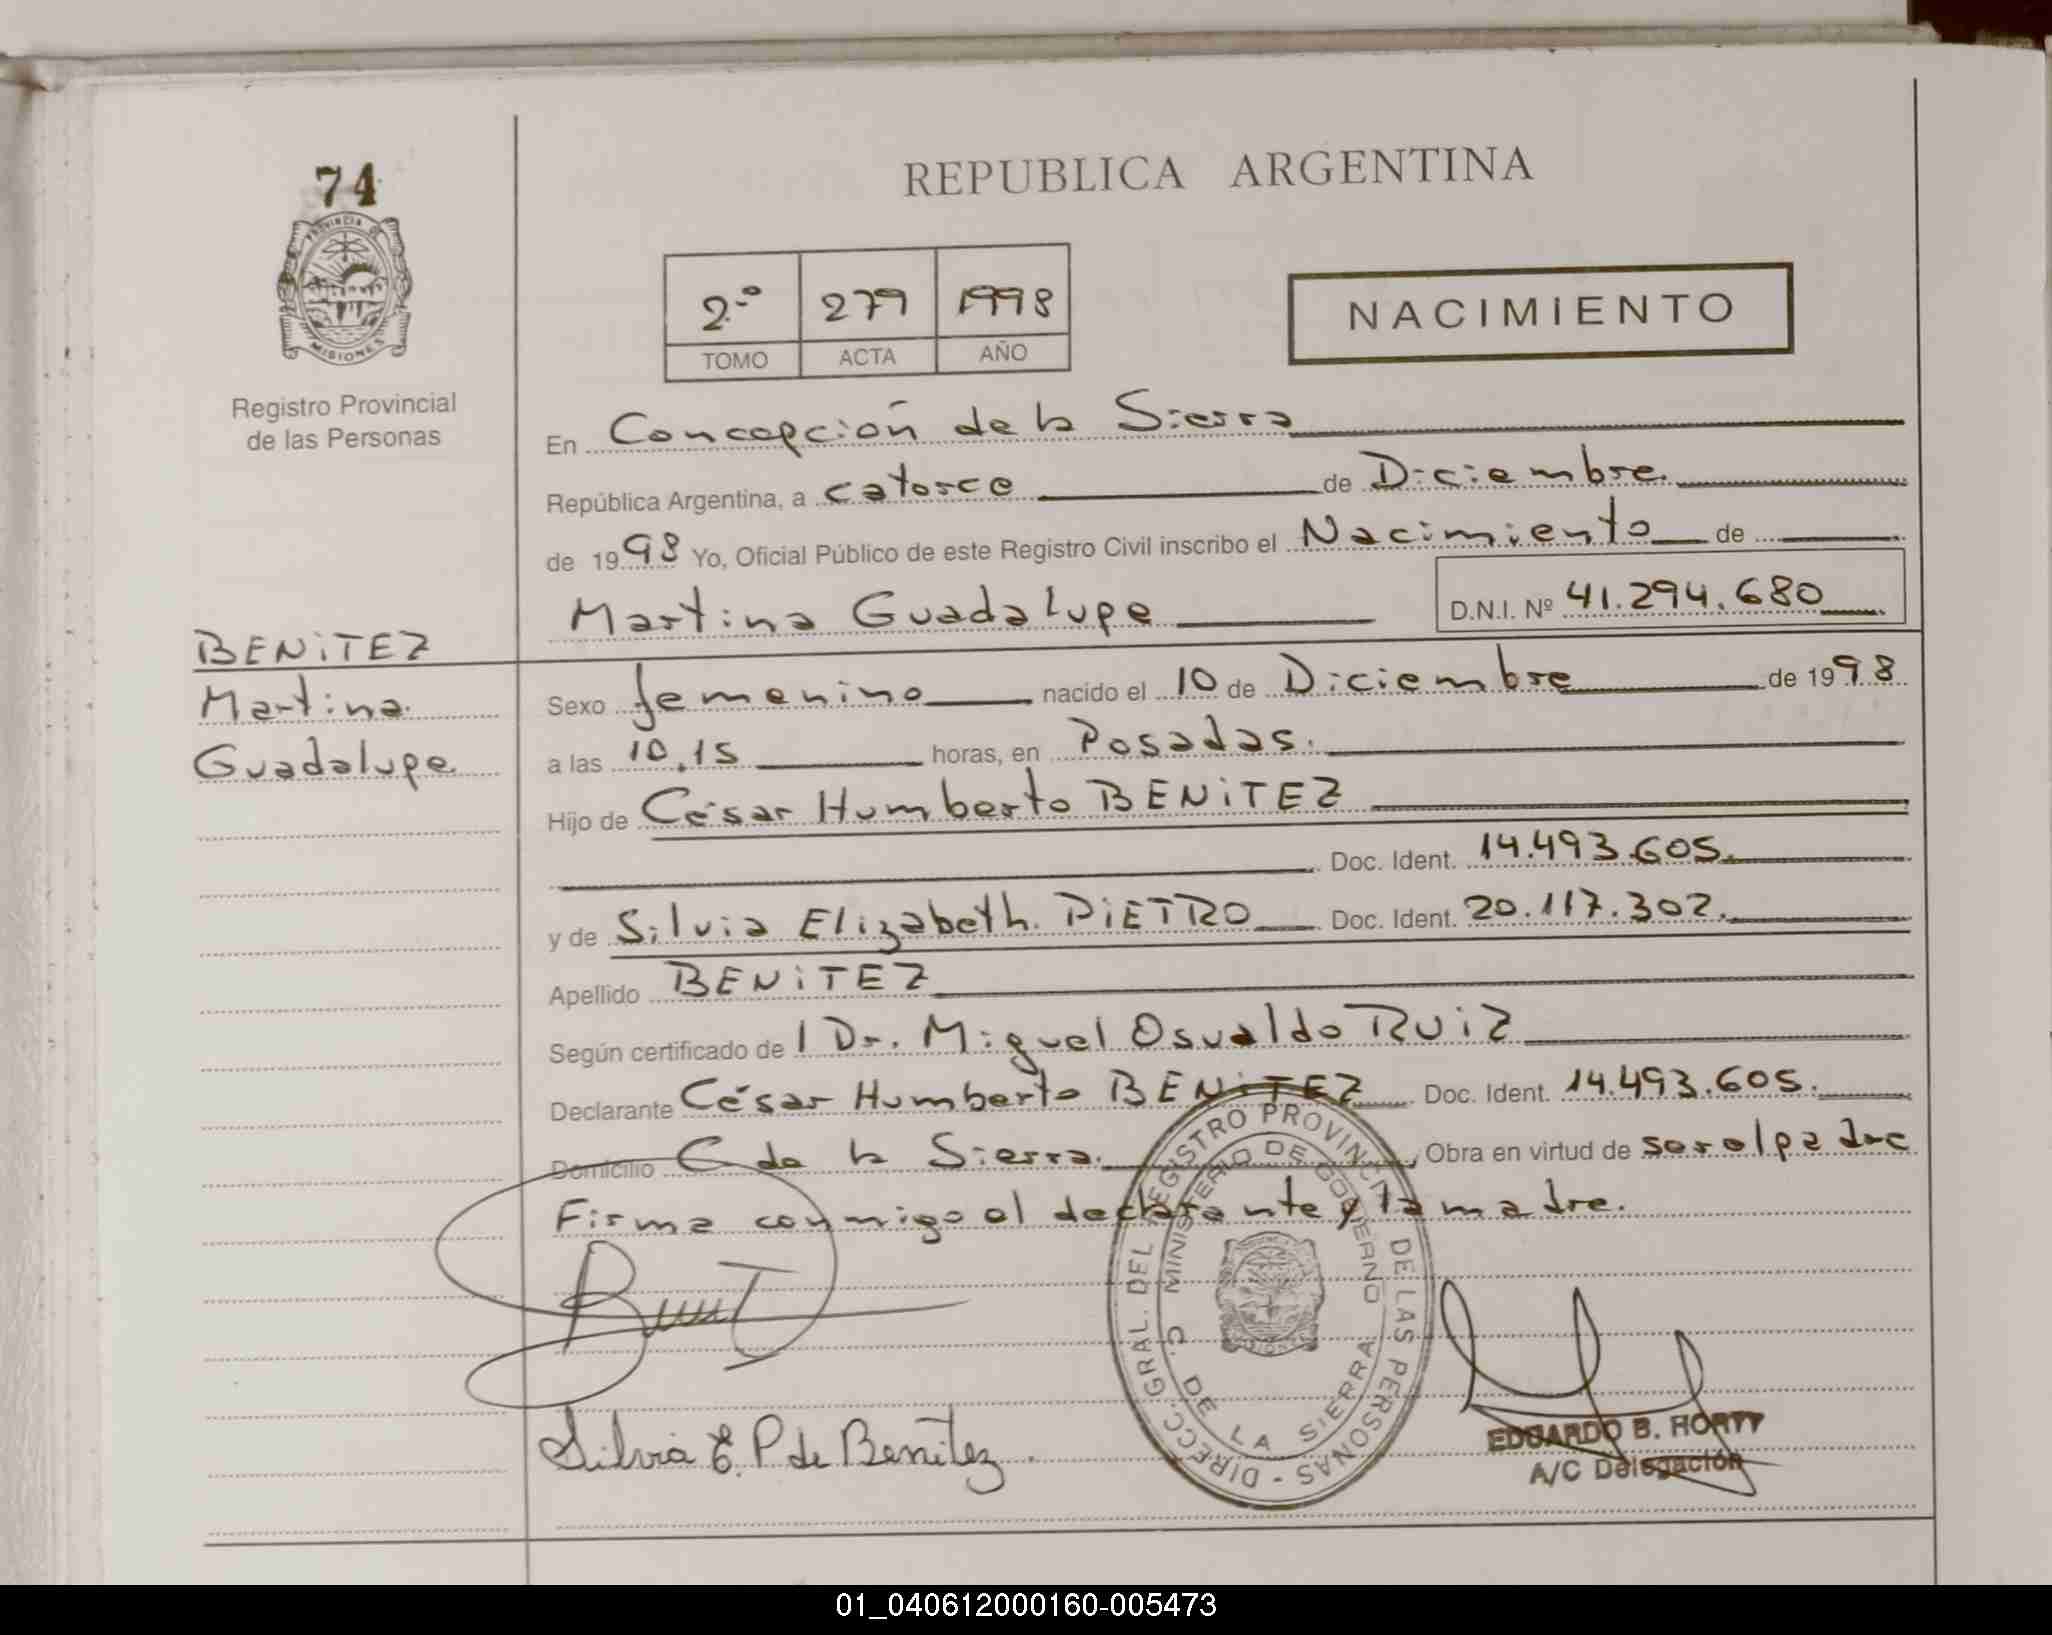 74
PROVINCIA DE
MISIONES
Registro Provincial
de las Personas
BENiTEZ
Martina
Guadalupe
REPUBLICA ARGENTINA
2.º 279 1998
TOMO ACTA AÑO
NACIMIENTO
En Concepción de la Sierra
República Argentina, a catorce de Diciembre.
de 1998 Yo, Oficial Público de este Registro Civil inscribo el Nacimiento de
Martina Guadalupe D.N.I. Nº 41.294.680
Sexo femenino nacido el 10 de Diciembre de 1998
a las 10.15 horas, en Posadas.
Hijo de César Humberto BENiTEZ
Doc. Ident. 14.493.605.
y de Silvia Elizabeth. PiETRO Doc. Ident. 20.117.302.
Apellido BENiTEZ
Según certificado del Dr. Miguel Osvaldo RUiZ
Declarante César Humberto BENiTEZ Doc. Ident. 14.493.605.
Domicilio C de la Sierra. Obra en virtud de ser el padre
Firma conmigo el declarante y la madre.
DIRECC. GRAL. DEL REGISTRO PROVINCIAL DE LAS PERSONAS -
MINISTERIO DE GOBIERNO
C. DE LA SIERRA
Silvia E. P de Benitez.
EDUARDO B. HORTY
A/C Delegación
01_040612000160-005473